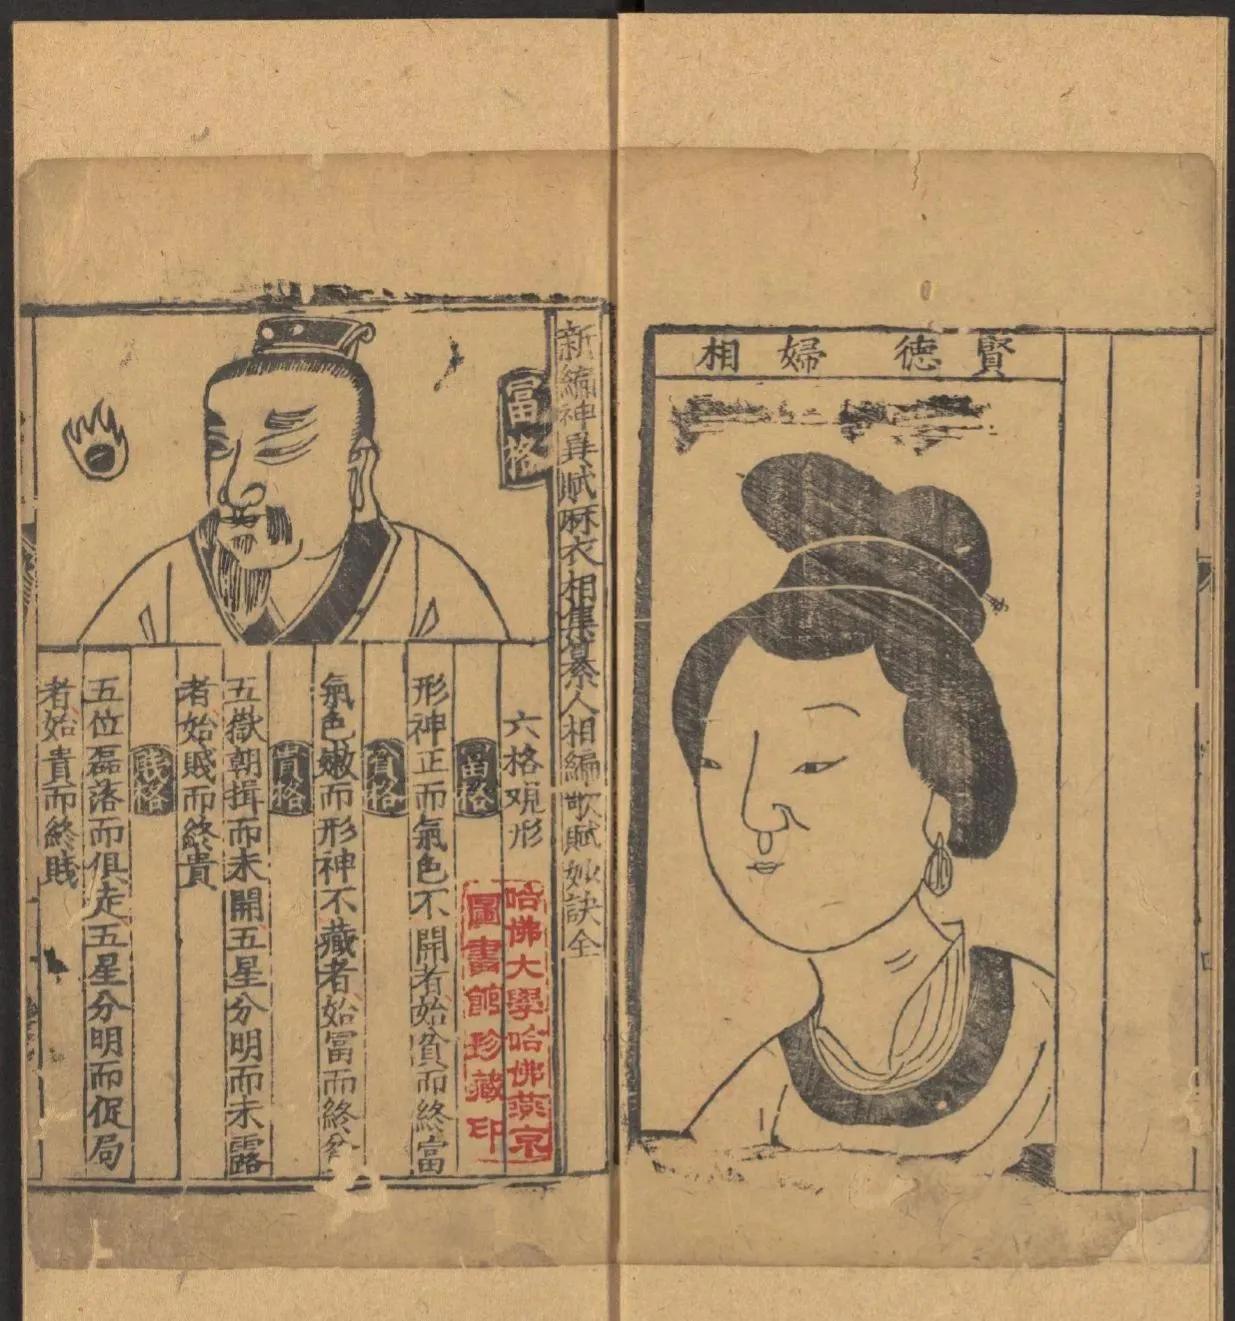 賢德婦相
新編神異賦麻衣相集纂人相編歌賦妙訣全
富格
六格观形
富格
形神正而氣色不開者始貧而終富
貧格
氣色嫩而形神不藏者始富而終貧
貴格
五嶽朝揖而未開五星分明而未露
者始賤而終貴
賤格
五位磊落而俱走五星分明而促局
者始貴而終賤
哈佛大學哈佛燕京
圖書館珍藏印